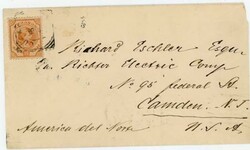 Richard Eschler Esqu.
Richter Electric Comp
No 95 federal St.
Camden. N. J.
America del Norte U. S. A